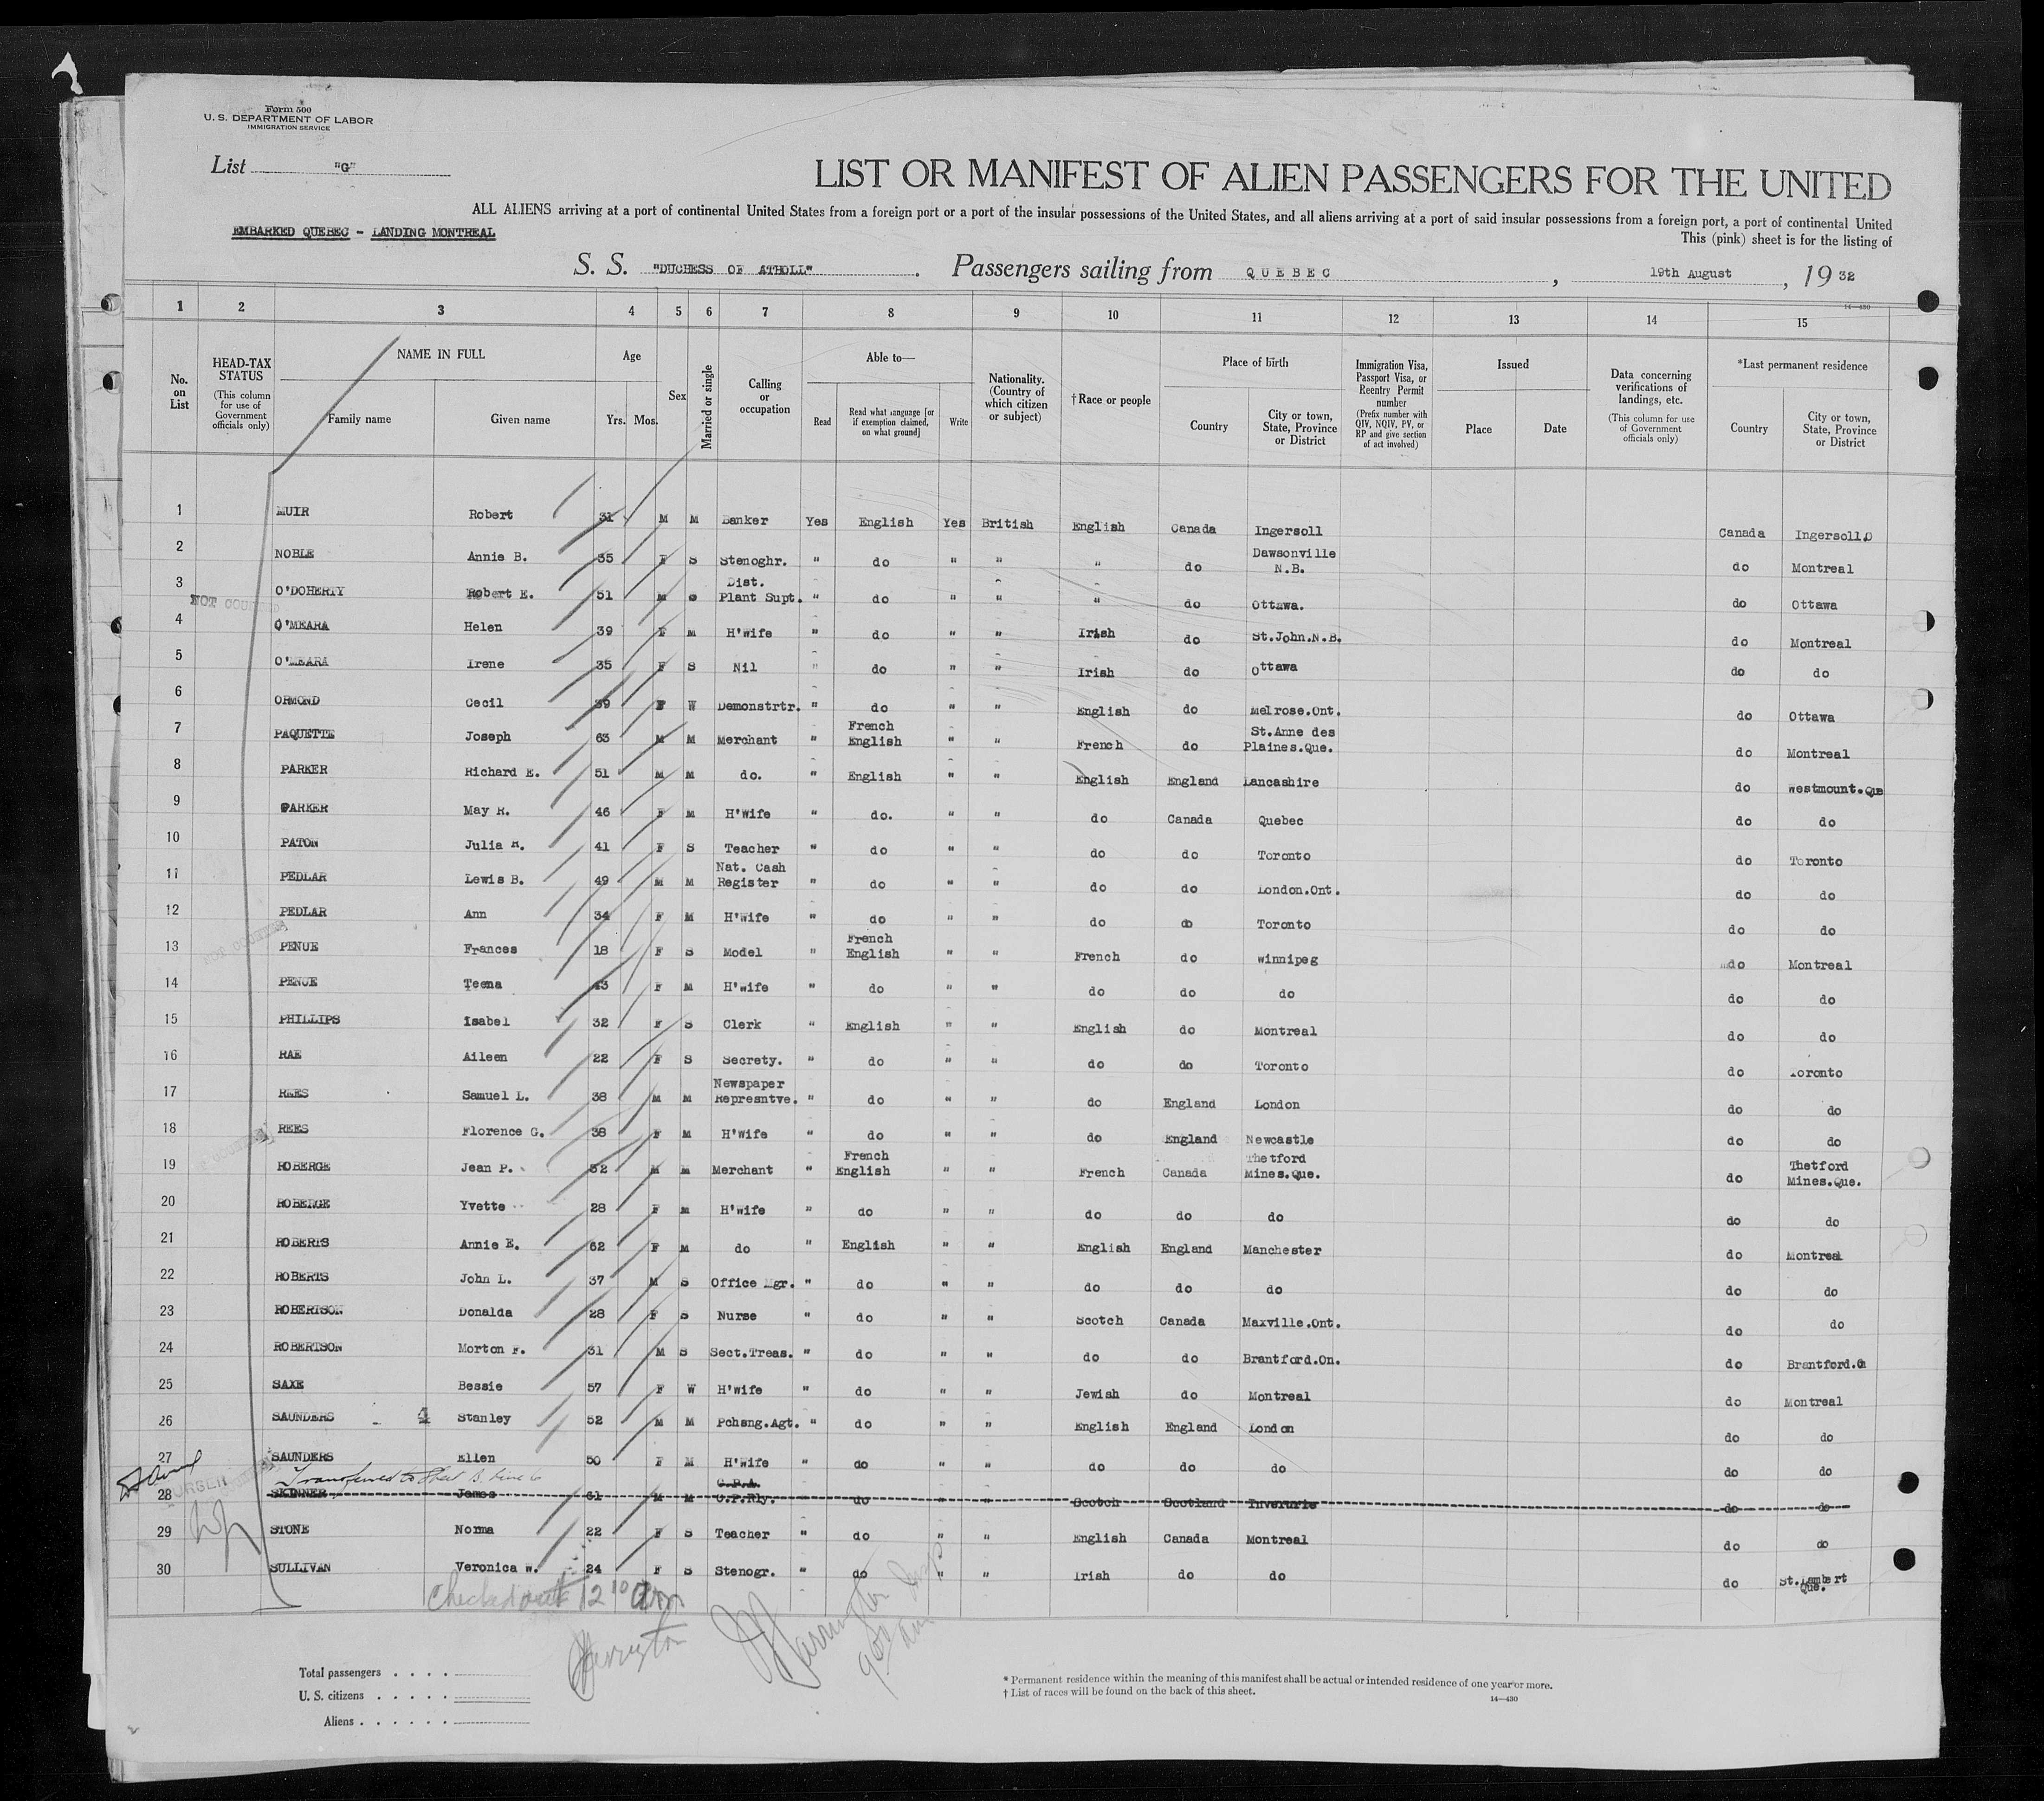 Form 500
U. S. DEPARTMENT OF LABOR
IMMIGRATION SERVICE
List "G"
LIST OR MANIFEST OF ALIEN PASSENGERS FOR THE UNITED
ALL ALIENS arriving at a port of continental United States from a foreign port or a port of the insular possessions of the United States, and all aliens arriving at a port of said insular possessions from a foreign port, a port of continental United
EMBARKED QUEBEC - LANDING MONTREAL
This (pink) sheet is for the listing of
S. S. "DUCHESS OF ATHOLL" . Passengers sailing from QUEBEC , 19th August , 19 32
14—430
1 2 3 4 5 6 7 8 9 10 11 12 13 14 15
No. on List
HEAD-TAX STATUS (This column for use of Government officials only)
NAME IN FULL
Family name
Given name
Age
Yrs. Mos.
Sex
Married or single
Calling or occupation
Able to—
Read
Read what language [or if exemption claimed, on what ground]
Write
Nationality. (Country of which citizen or subject)
†Race or people
Place of birth
Country
City or town, State, Province or District
Immigration Visa, Passport Visa, or Reentry Permit number (Prefix number with QIV, NQIV, PV, or RP and give section of act involved)
Issued
Place
Date
Data concerning verifications of landings, etc. (This column for use of Government officials only)
*Last permanent residence
Country
City or town, State, Province or District
1 MUIR Robert 31 M M Banker Yes English Yes British English Canada Ingersoll Canada Ingersoll,O
2 NOBLE Annie B. 35 F S Stenoghr. " do " " " do Dawsonville N.B. do Montreal
3 O'DOHERTY Robert E. 51 M S Dist. Plant Supt. " do " " " do Ottawa. do Ottawa
NOT COUNTED
4 O'MEARA Helen 39 F M H'Wife " do " " Irish do St.John.N.B. do Montreal
5 O'MEARA Irene 35 F S Nil " do " " Irish do Ottawa do do
6 ORMOND Cecil 39 F W Demonstrtr. " do " " English do Melrose.Ont. do Ottawa
7 PAQUETTE Joseph 63 M M Merchant " French English " " French do St.Anne des Plaines.Que. do Montreal
8 PARKER Richard E. 51 M M do. " English " " English England Lancashire do Westmount.Que
9 PARKER May R. 46 F M H'Wife " do. " " do Canada Quebec do do
10 PATON Julia R. 41 F S Teacher " do " " do do Toronto do Toronto
11 PEDLAR Lewis B. 49 M M Nat. Cash Register " do " " do do London.Ont. do do
12 PEDLAR Ann 34 F M H'Wife " do " " do do Toronto do do
13 PENUE Frances 18 F S Model " French English " " French do Winnipeg do Montreal
14 PENUE Teena 43 F M H'wife " do " " do do do do do
15 PHILLIPS Isabel 32 F S Clerk " English " " English do Montreal do do
16 RAE Aileen 22 F S Secrety. " do " " do do Toronto do Toronto
17 REES Samuel L. 38 M M Newspaper Represntve. " do " " do England London do do
18 REES Florence G. 38 F M H'Wife " do " " do England Newcastle do do
19 ROBERGE Jean P. 32 M M Merchant " French English " " French Canada Thetford Mines.Que. do Thetford Mines.Que.
20 ROBERGE Yvette 28 F M H'wife " do " " do do do do do
21 ROBERTS Annie E. 62 F M do " English " " English England Manchester do Montreal
22 ROBERTS John L. 37 M S Office Mgr. " do " " do do do do do
23 ROBERTSON Donalda 28 F S Nurse " do " " Scotch Canada Maxville.Ont. do do
24 ROBERTSON Morton F. 31 M S Sect.Treas. " do " " do do Brantford.On. do Brantford.On
25 SAXE Bessie 57 F W H'wife " do " " Jewish do Montreal do Montreal
26 SAUNDERS 4 Stanley 52 M M Pchsng.Agt. " do " " English England London do do
27 SAUNDERS Ellen 50 F M H'Wife " do " " do do do do do
Transferred to Sheet B. Line 6
28 SKINNER James 61 M M G.P.A. C.P.Rly. do " " Scotch Scotland Inverurie do do
29 STONE Norma 22 F S Teacher " do " " English Canada Montreal do do
30 SULLIVAN Veronica W. 24 F S Stenogr. " do " " Irish do do do St.Lambert Que.
Checked out 12 10 am
Harrington
Harrington Insp
9 00 am
Total passengers . . . .
U. S. citizens . . . . .
Aliens . . . . . .
* Permanent residence within the meaning of this manifest shall be actual or intended residence of one year or more.
† List of races will be found on the back of this sheet.
14—430